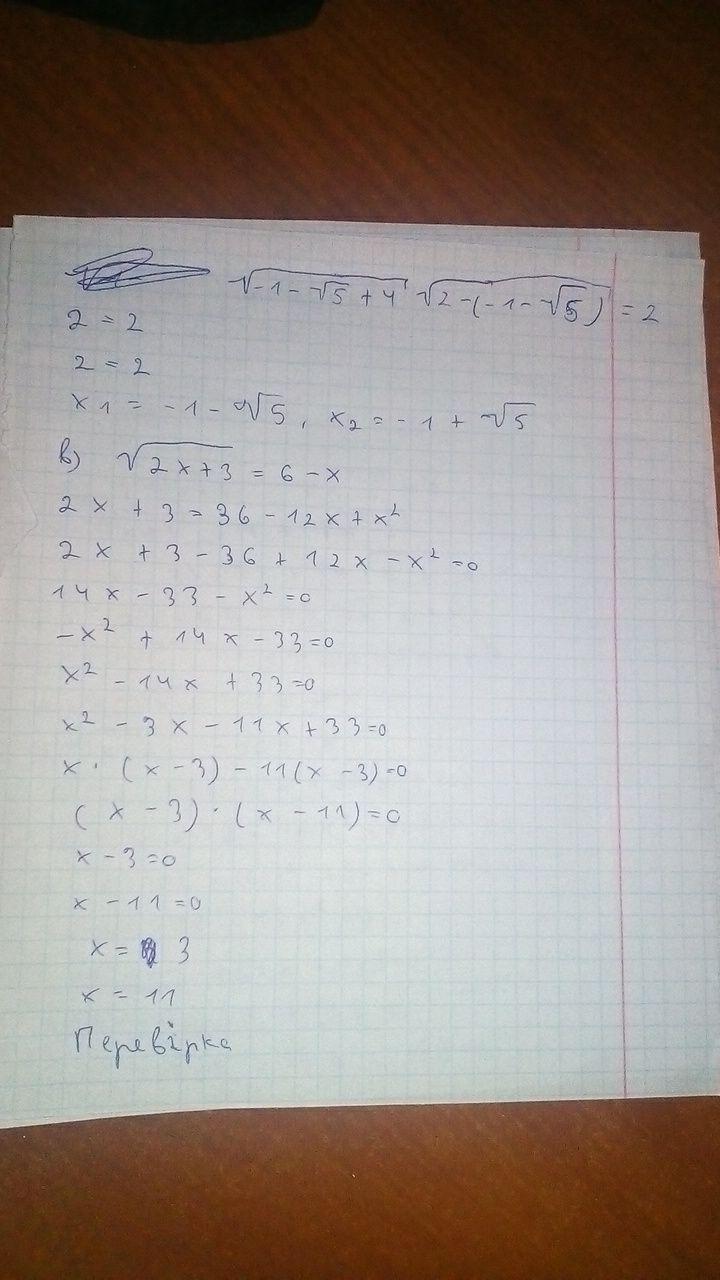 √(-1-√5+4) √(2-(-1-√5)) = 2
2 = 2
2 = 2
x1 = -1-√5, x2 = -1+√5
в) √(2x+3) = 6-x
2x + 3 = 36 - 12x + x²
2x + 3 - 36 + 12x - x² = 0
14x - 33 - x² = 0
-x² + 14x - 33 = 0
x² - 14x + 33 = 0
x² - 3x - 11x + 33 = 0
x · (x - 3) - 11(x - 3) = 0
(x - 3) · (x - 11) = 0
x - 3 = 0
x - 11 = 0
x = 3
x = 11
Перевірка